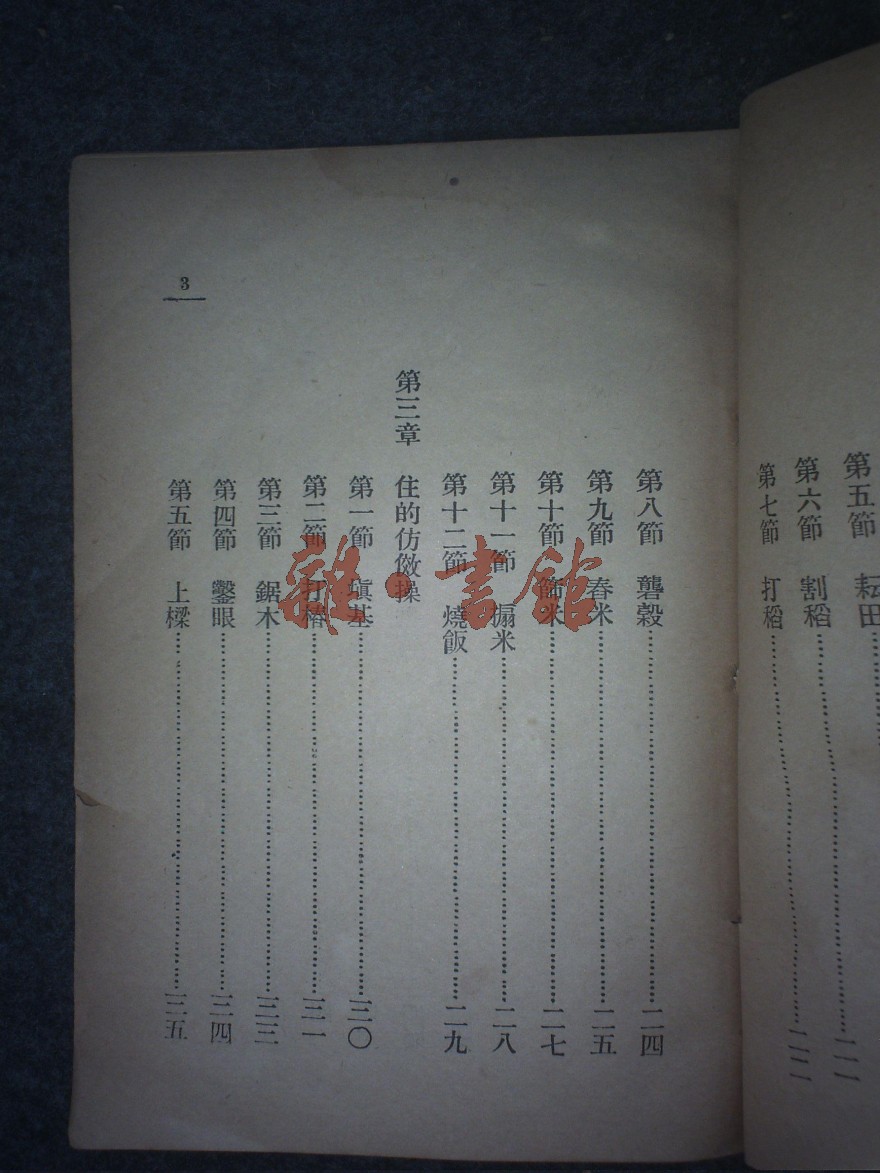 第五節 耘田
第六節 割稻…………二一
第七節 打稻…………二二
第八節 礱穀…………二四
第九節 舂米…………二五
第十節 篩米…………二七
第十一節 搧米…………二八
第十二節 燒飯…………二九
第三章 住的仿傚操
第一節 塡基…………三〇
第二節 打樁…………三一
第三節 鋸木…………三三
第四節 鑿眼…………三四
第五節 上樑…………三五
3
雜·書館